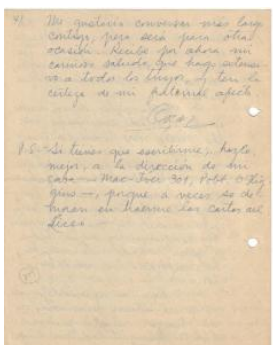 4/. Me gustaría conversar más largo
contigo, pero será para otra
ocasión. Recibe por ahora mi
cariñoso saludo, que hago extensi-
vo a todos los tuyos, y ten la
certeza de mi fraternal afecto.
P.D.- Si tienes que escribirme, hazlo,
mejor, a la dirección de mi
casa - Mac-Iver 301, Pobl. O'Hig
gins -, porque a veces se de
moran en traerme las cartas del
Liceo.-